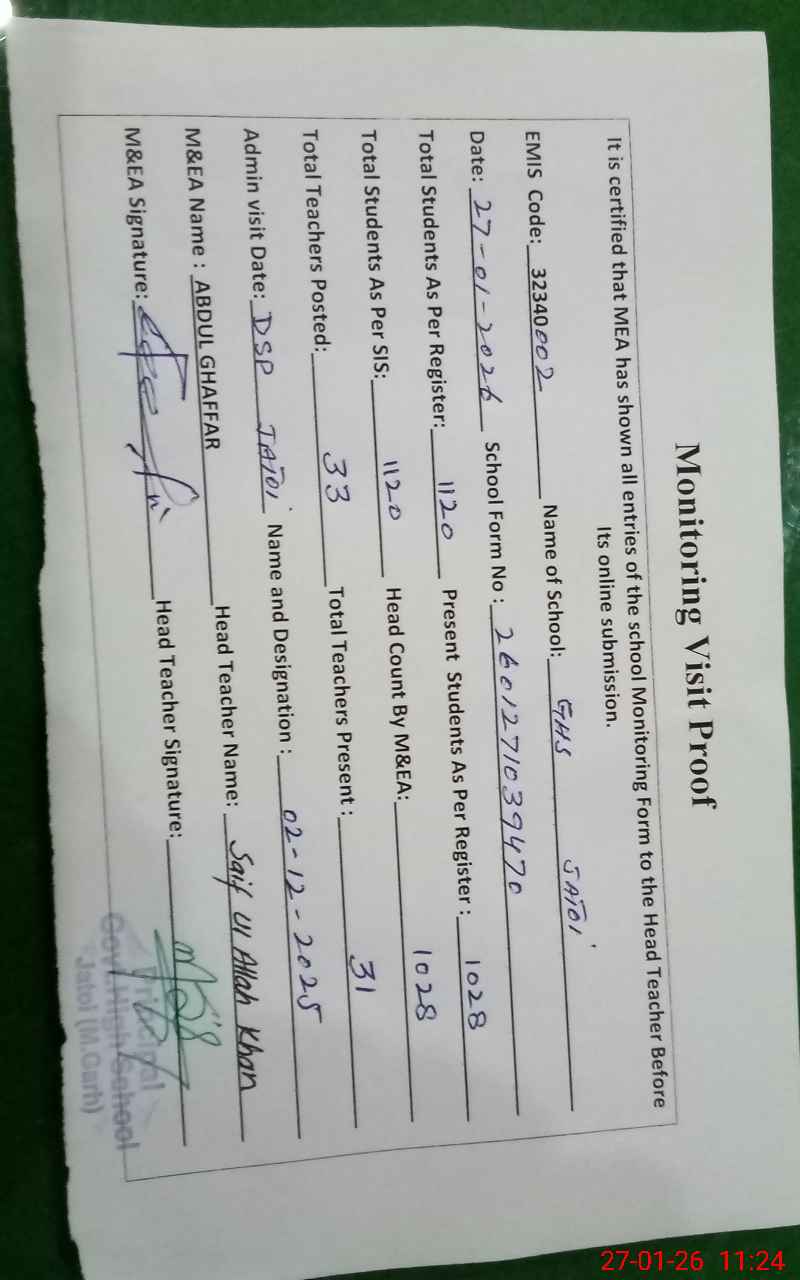 Monitoring Visit Proof
It is certified that MEA has shown all entries of the school Monitoring Form to the Head Teacher Before
Its online submission.
EMIS Code: 32340002 Name of School: GHS JATOI
Date: 27-01-2026 School Form No : 2601271039470
Total Students As Per Register: 1120 Present Students As Per Register : 1028
Total Students As Per SIS: 1120 Head Count By M&EA: 1028
Total Teachers Posted: 33 Total Teachers Present : 31
Admin visit Date: DSP JATOI Name and Designation : 02-12-2025
M&EA Name : ABDUL GHAFFAR Head Teacher Name: Saif Ul Allah Khan
M&EA Signature: Head Teacher Signature:
Principal
Govt. High School
Jatoi (M.Garh)
27-01-26 11:24